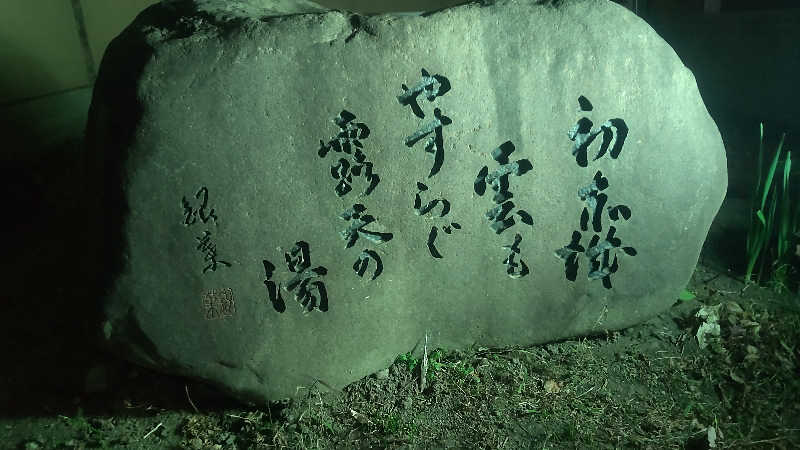 初赤城
雲も
やすらぐ
露天の
湯
銀葉